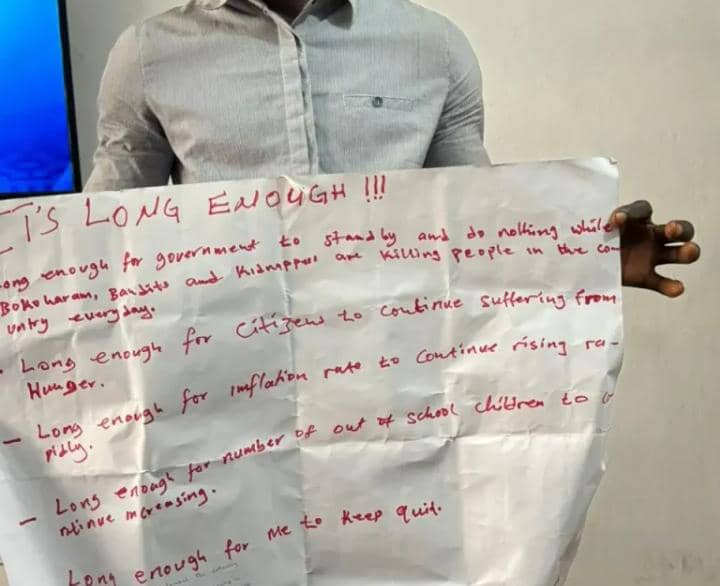 IT'S LONG ENOUGH !!!
Long enough for government to standby and do nothing while
Boko haram, Bandits and Kidnappers are killing people in the co-
untry everyday.
- Long enough for citizens to continue suffering from
Hunger.
- Long enough for inflation rate to continue rising ra-
pidly.
- Long enough for number of out of school children to co
ntinue increasing.
Long enough for me to keep quit.